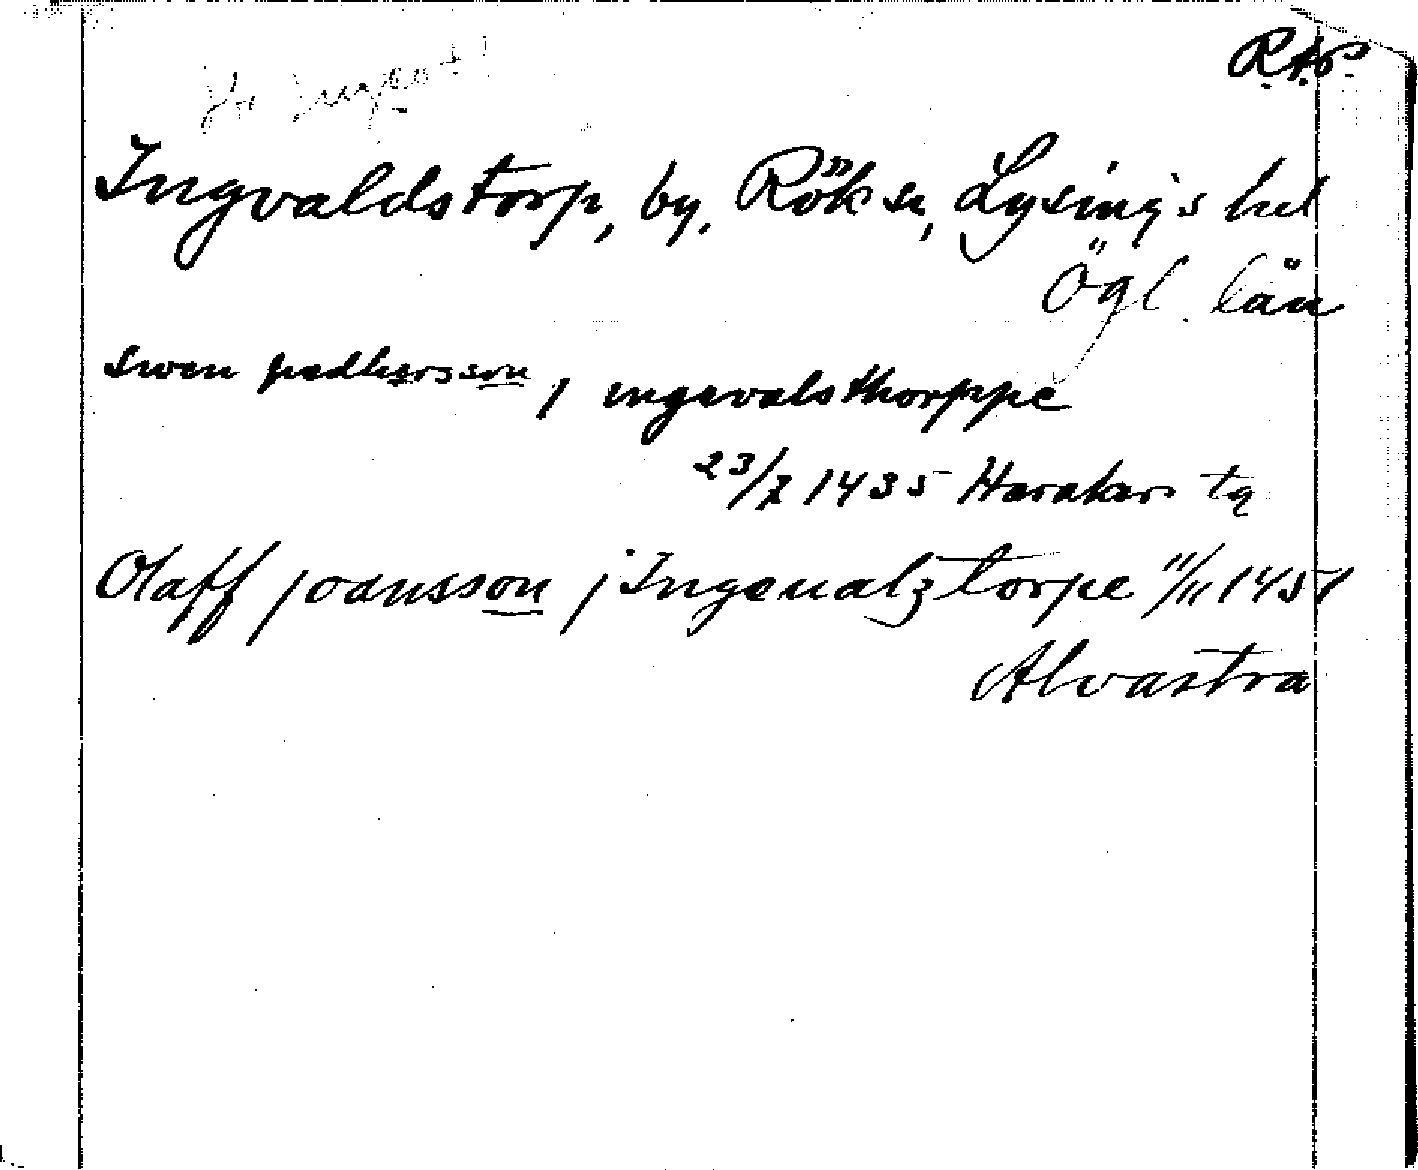 R.A.P.
Ingvaldstorp, by, Röks sn, Lysings hd
Ögl. län
swen pædhersson j ingevalsthorppe
23/7 1435 Harakers tg
Olaff joansson j Ingeualztorpe 11/11 1451
Alvastra